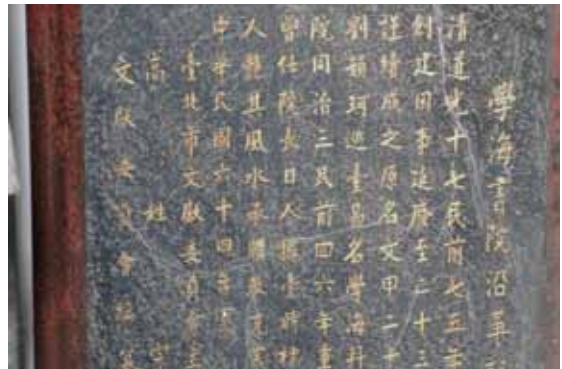 學海書院沿革
清道光十七民前七五年
創建因事延廢至二十三
謹續成之原名文甲二十
劉韻珂巡臺易名學海
院同治三民前四六年重
曾任院長日人據臺時
人懸其風水承購
中華民國六十四年
臺北市文獻委員會
高姓
文獻委員會